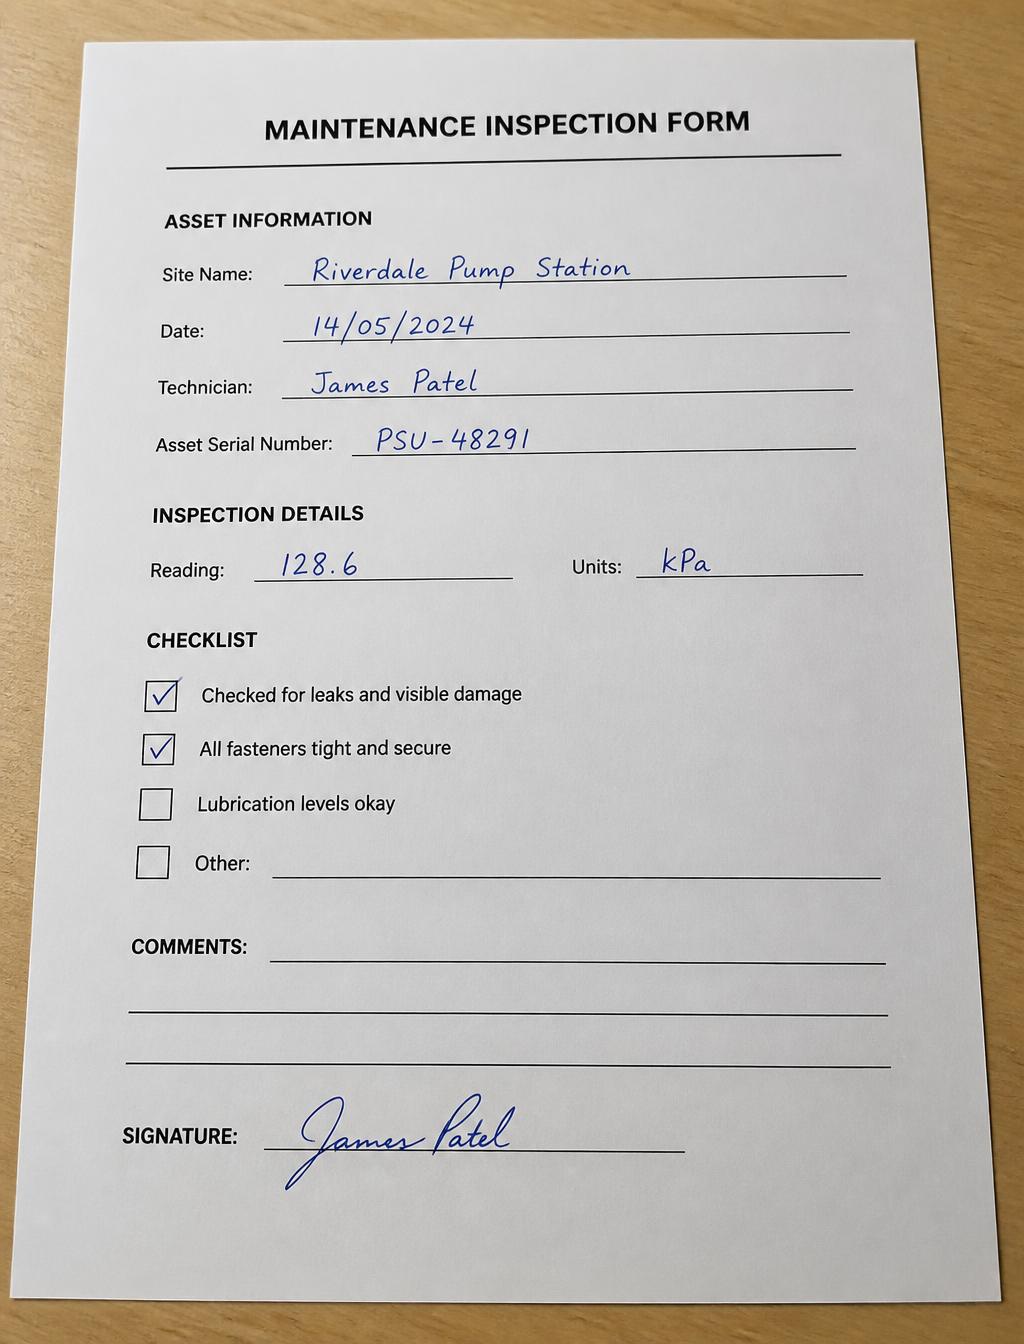 MAINTENANCE INSPECTION FORM
ASSET INFORMATION
Site Name: Riverdale Pump Station
Date: 14/05/2024
Technician: James Patel
Asset Serial Number: PSU-48291
INSPECTION DETAILS
Reading: 128.6 Units: kPa
CHECKLIST
Checked for leaks and visible damage
All fasteners tight and secure
Lubrication levels okay
Other:
COMMENTS:
SIGNATURE: James Patel